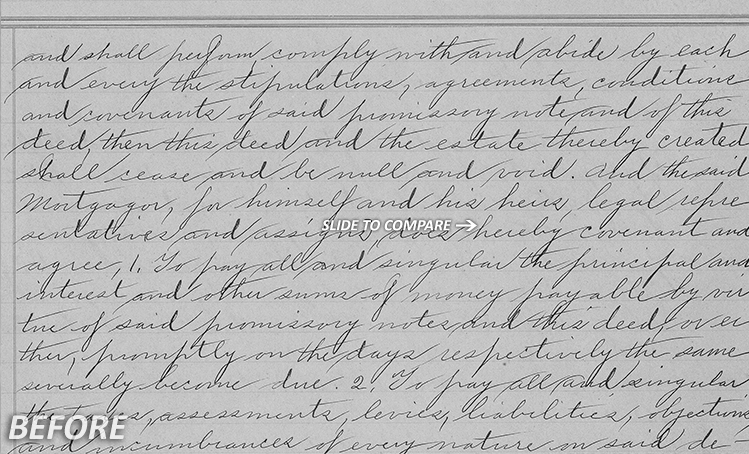 and shall perform, comply with and abide by each
and every the stipulations, agreements, conditions
and covenants of said promissory note, and of this
deed, then this deed and the estate thereby created
shall cease and be null and void. And the said
Mortgagor, for himself and his heirs, legal repre
sentatives and assigns, does hereby covenant and
SLIDE TO COMPARE
agree, 1. To pay all and singular the principal and
interest and other sums of money payable by vir
tue of said promissory notes and this deed, or ei
ther, promptly on the days respectively the same
severally become due. 2. To pay all and singular
the taxes, assessments, levies, liabilities, objections
BEFORE
and incumbrances of every nature on said de-